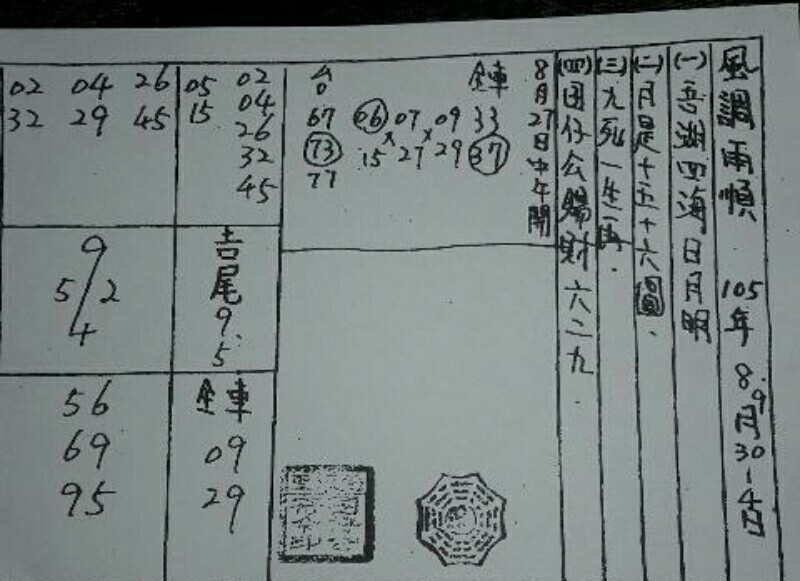 風調雨順 105年 8.9月30-4日
(一)吾湖四海日月明
(二)月是十五十六圓.
(三)九死一生一再.
(四)囝仔公賜財六二九.
8月27日中午開
全車
台 67 73 77
06 07 09 33
15 27 29 37
05 15
02 04 26 32 45
02 04 26
32 29 45
吉尾 9.5
9
5/2
4
全車
09
29
56
69
95